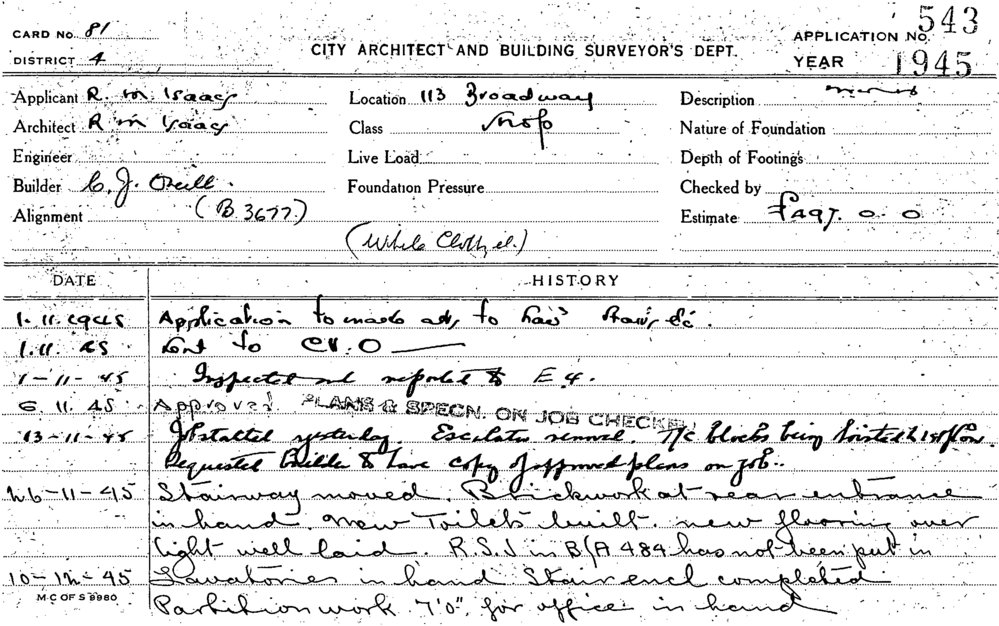 CARD No. 81
DISTRICT 4
CITY ARCHITECT AND BUILDING SURVEYOR'S DEPT.
APPLICATION No. 543
YEAR 1945
Applicant R. M. Isaacs
Location 113 Broadway
Description
Architect R M Isaacs
Class Shop
Nature of Foundation
Engineer
Live Load
Depth of Footings
Builder C. J. O'Neill.
Foundation Pressure
Checked by
Alignment (B 3677)
Estimate £997. 0. 0
DATE HISTORY
1. 11. 1945 Application to to
1. 11. 45 Sent to
1-11-45 Inspected and reported to E 4.
6. 11. 45 Approved PLANS & SPECN. ON JOB CHECKED
13-11-45 Job started yesterday. Escalator removed. T/c blocks being hoisted to 1st floor.
Requested Builder to have copy of approved plans on job.
26-11-45 Stairway moved. Brickwork at rear entrance
in hand. New Toilets built. new flooring over
light well laid. R.S.J in B/A 484 has not been put in
10-12-45 Lavatories in hand Stair encl completed
Partition work 7'0". for office in hand
M C OF S 9980